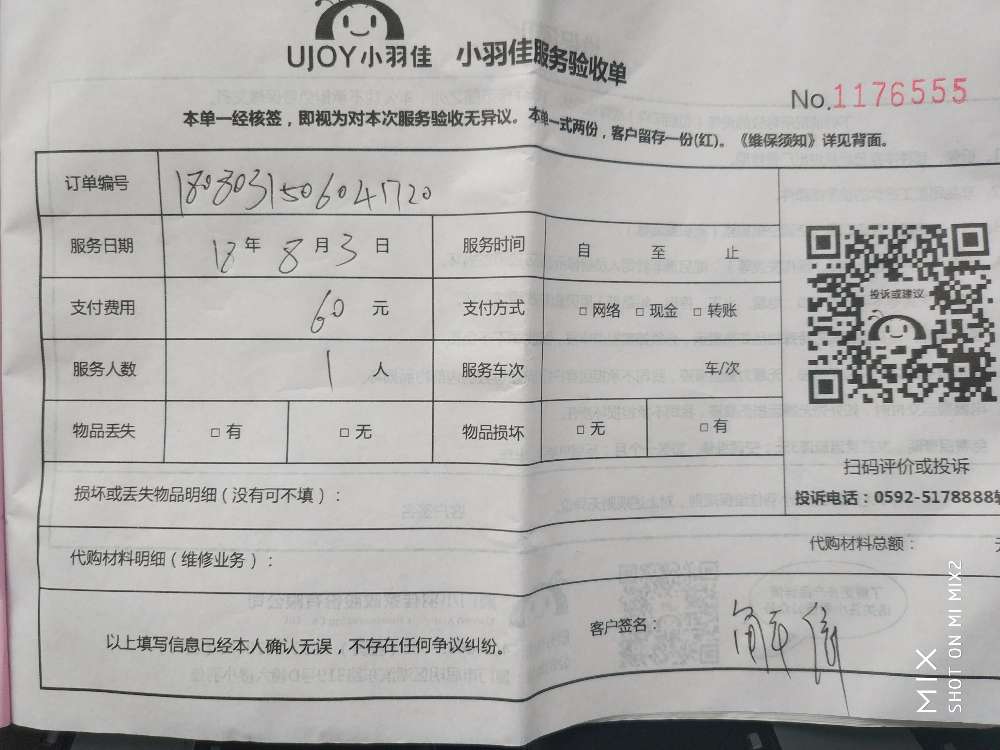 UJOY小羽佳 小羽佳服务验收单
No.1176555
本单一经核签，即视为对本次服务验收无异议。本单一式两份，客户留存一份(红)。《维保须知》详见背面。
订单编号 1808031506041720
服务日期 18 年 8 月 3 日 服务时间 自 至 止
支付费用 60 元 支付方式 □ 网络 □ 现金 □ 转账
服务人数 1 人 服务车次 车/次
物品丢失 □ 有 □ 无 物品损坏 □ 无 □ 有
投诉或建议
扫码评价或投诉
投诉电话：0592-5178888转
损坏或丢失物品明细（没有可不填）：
代购材料明细（维修业务）： 代购材料总额：
以上填写信息已经本人确认无误，不存在任何争议纠纷。
客户签名：
MIX
SHOT ON MI MIX2